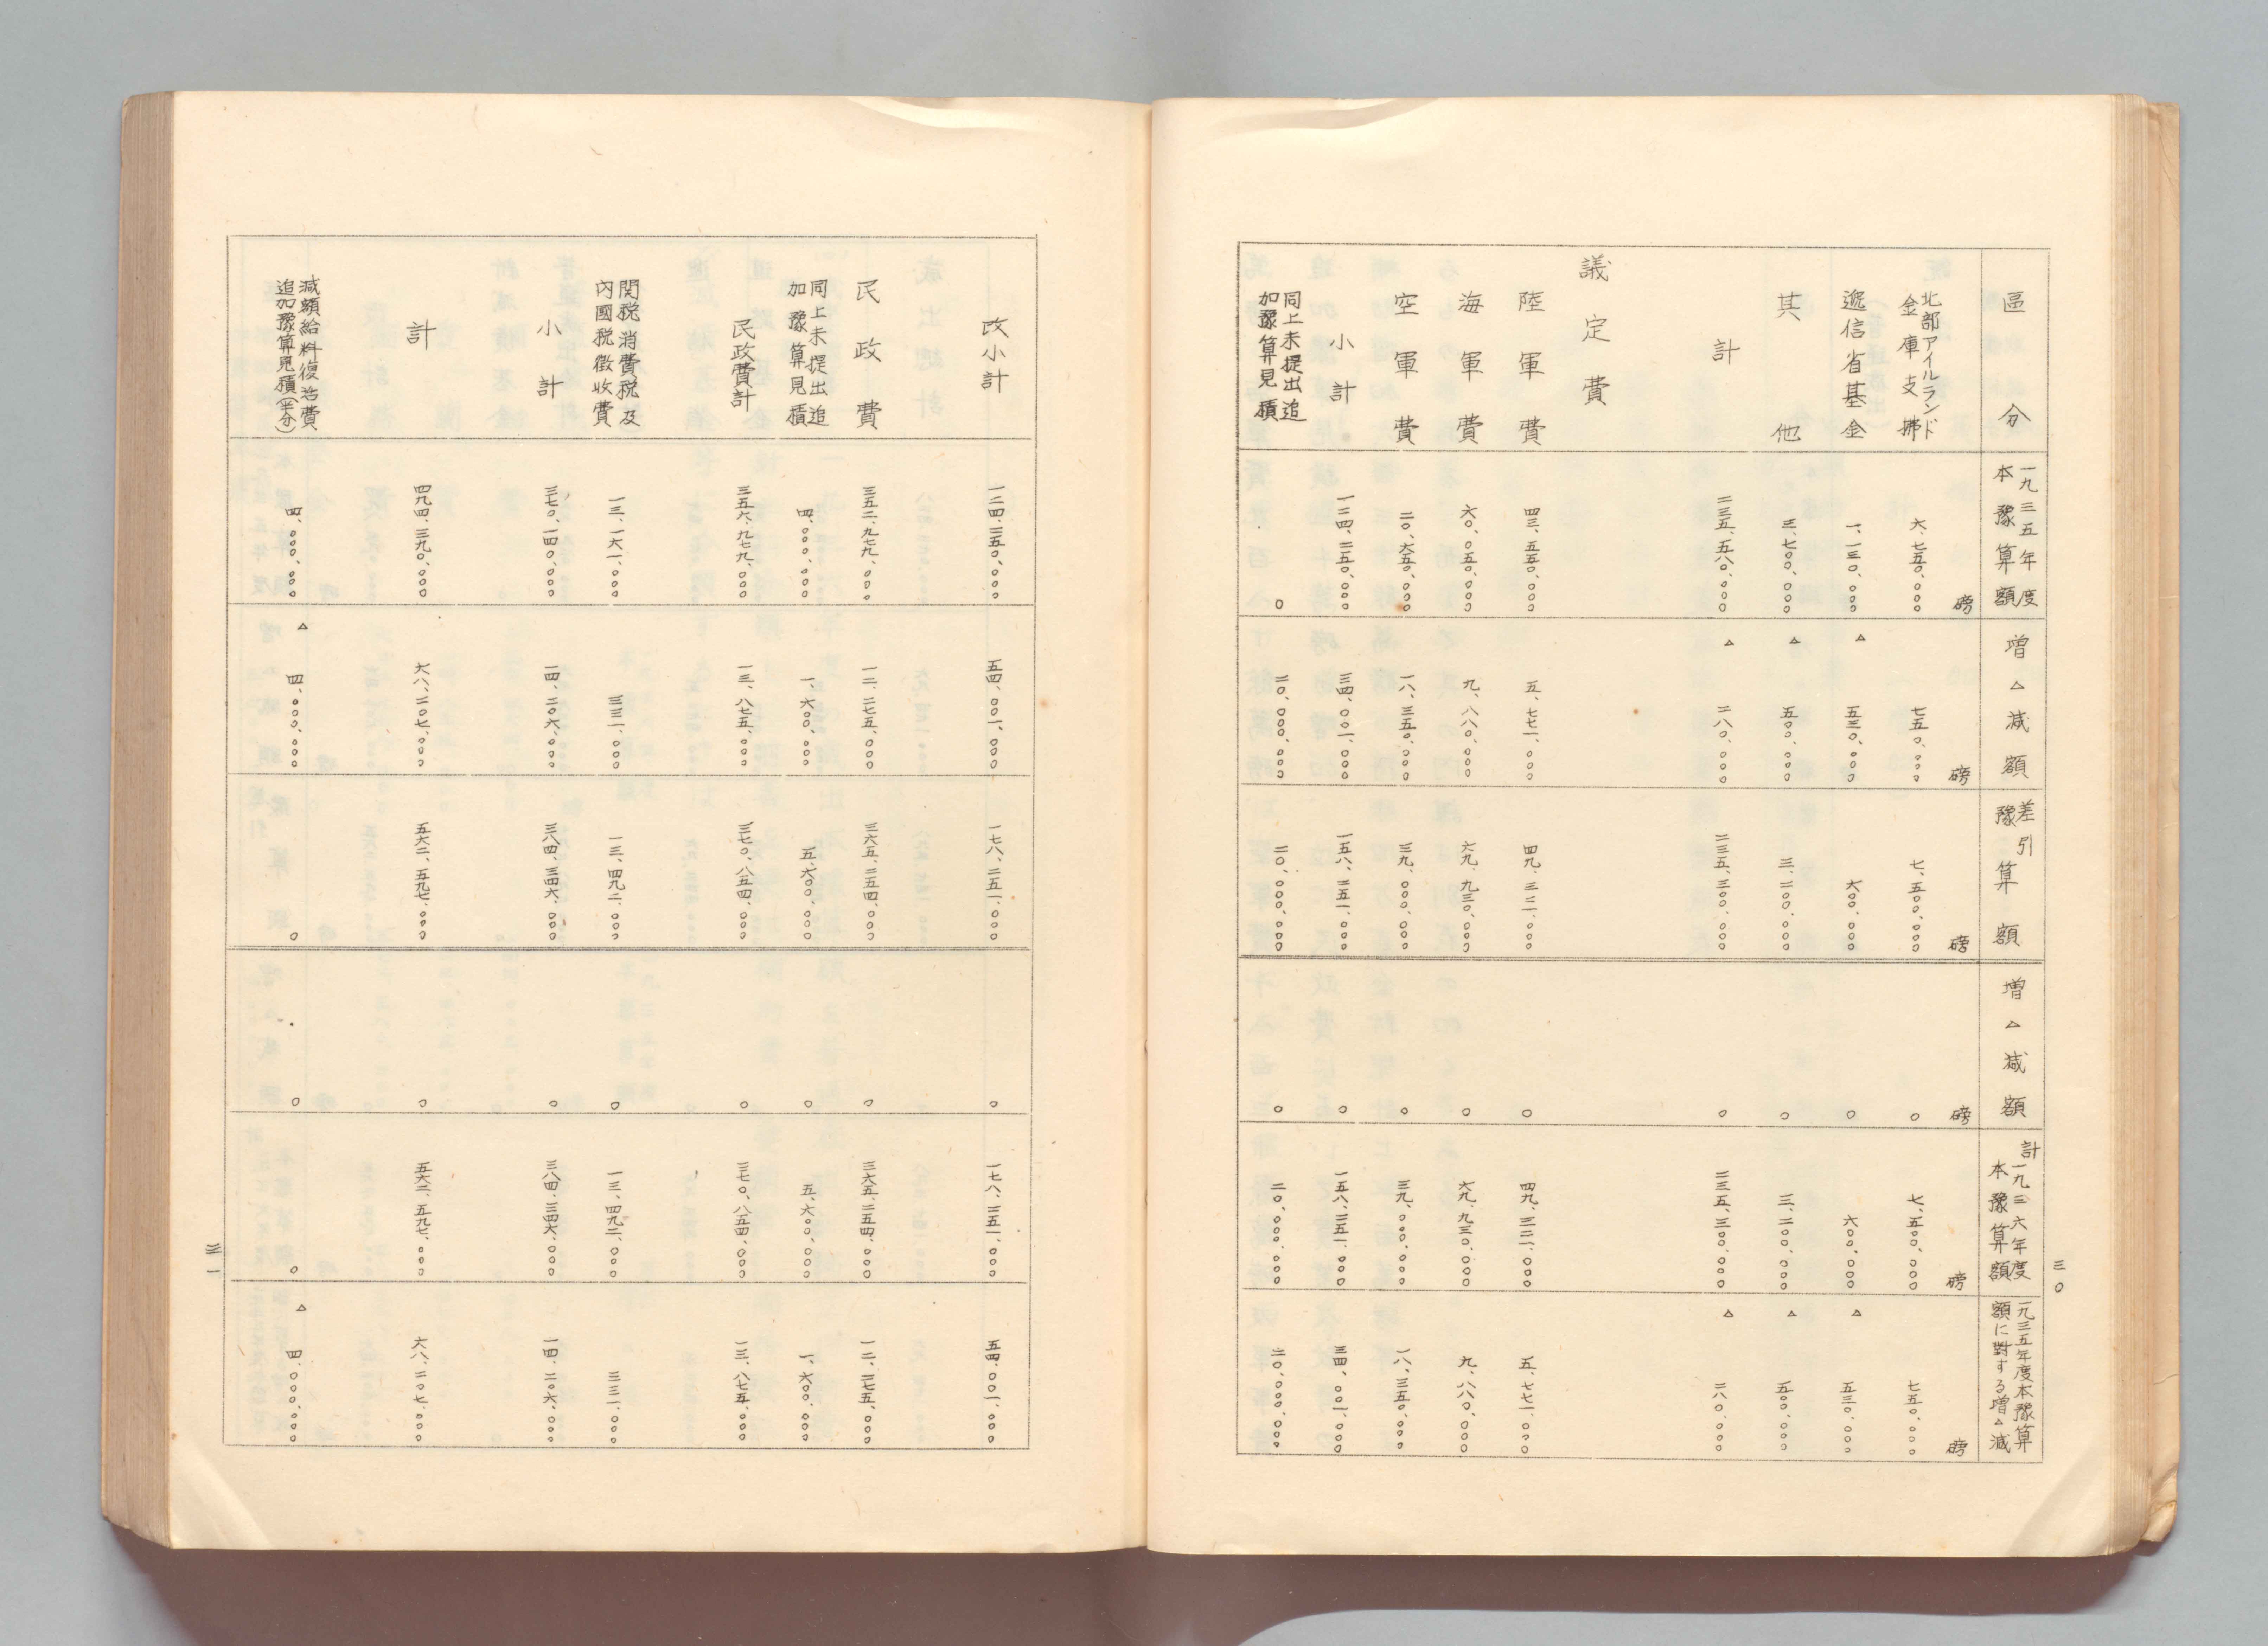 三〇
區分 一九三五年度本豫算額 増△減額 差引豫算額 増△減額 計一九三六年度本豫算額 一九三五年度本豫算額に對する増△減
磅 磅 磅 磅 磅 磅
北部アイルランド金庫支拂 六、七五〇、〇〇〇 七五〇、〇〇〇 七、五〇〇、〇〇〇 〇 七、五〇〇、〇〇〇 七五〇、〇〇〇
遞信省基金 一、一三〇、〇〇〇 △ 五三〇、〇〇〇 六〇〇、〇〇〇 〇 六〇〇、〇〇〇 △ 五三〇、〇〇〇
其他 三、七〇〇、〇〇〇 △ 五〇〇、〇〇〇 三、二〇〇、〇〇〇 〇 三、二〇〇、〇〇〇 △ 五〇〇、〇〇〇
計 二三五、五八〇、〇〇〇 △ 二八〇、〇〇〇 二三五、三〇〇、〇〇〇 〇 二三五、三〇〇、〇〇〇 △ 二八〇、〇〇〇
議定費
陸軍費 四三、五五〇、〇〇〇 五、七七一、〇〇〇 四九、三二一、〇〇〇 〇 四九、三二一、〇〇〇 五、七七一、〇〇〇
海軍費 六〇、〇五〇、〇〇〇 九、八八〇、〇〇〇 六九、九三〇、〇〇〇 〇 六九、九三〇、〇〇〇 九、八八〇、〇〇〇
空軍費 二〇、六五〇、〇〇〇 一八、三五〇、〇〇〇 三九、〇〇〇、〇〇〇 〇 三九、〇〇〇、〇〇〇 一八、三五〇、〇〇〇
小計 一二四、二五〇、〇〇〇 三四、〇〇一、〇〇〇 一五八、二五一、〇〇〇 〇 一五八、二五一、〇〇〇 三四、〇〇一、〇〇〇
同上未提出追加豫算見積 〇 二〇、〇〇〇、〇〇〇 二〇、〇〇〇、〇〇〇 〇 二〇、〇〇〇、〇〇〇 二〇、〇〇〇、〇〇〇
改小計 一二四、二五〇、〇〇〇 五四、〇〇一、〇〇〇 一七八、二五一、〇〇〇 〇 一七八、二五一、〇〇〇 五四、〇〇一、〇〇〇
民政費 三五二、九七九、〇〇〇 一二、二七五、〇〇〇 三六五、二五四、〇〇〇 〇 三六五、二五四、〇〇〇 一二、二七五、〇〇〇
同上未提出追加豫算見積 四、〇〇〇、〇〇〇 一、六〇〇、〇〇〇 五、六〇〇、〇〇〇 〇 五、六〇〇、〇〇〇 一、六〇〇、〇〇〇
民政費計 三五六、九七九、〇〇〇 一三、八七五、〇〇〇 三七〇、八五四、〇〇〇 〇 三七〇、八五四、〇〇〇 一三、八七五、〇〇〇
関税消費税及内國税徴收費 一三、一六一、〇〇〇 三三一、〇〇〇 一三、四九二、〇〇〇 〇 一三、四九二、〇〇〇 三三一、〇〇〇
小計 三七〇、一四〇、〇〇〇 一四、二〇六、〇〇〇 三八四、三四六、〇〇〇 〇 三八四、三四六、〇〇〇 一四、二〇六、〇〇〇
計 四九四、三九〇、〇〇〇 六八、二〇七、〇〇〇 五六二、五九七、〇〇〇 〇 五六二、五九七、〇〇〇 六八、二〇七、〇〇〇
減額給料復活費追加豫算見積(半分) 四、〇〇〇、〇〇〇 △ 四、〇〇〇、〇〇〇 〇 〇 〇 △ 四、〇〇〇、〇〇〇
三一